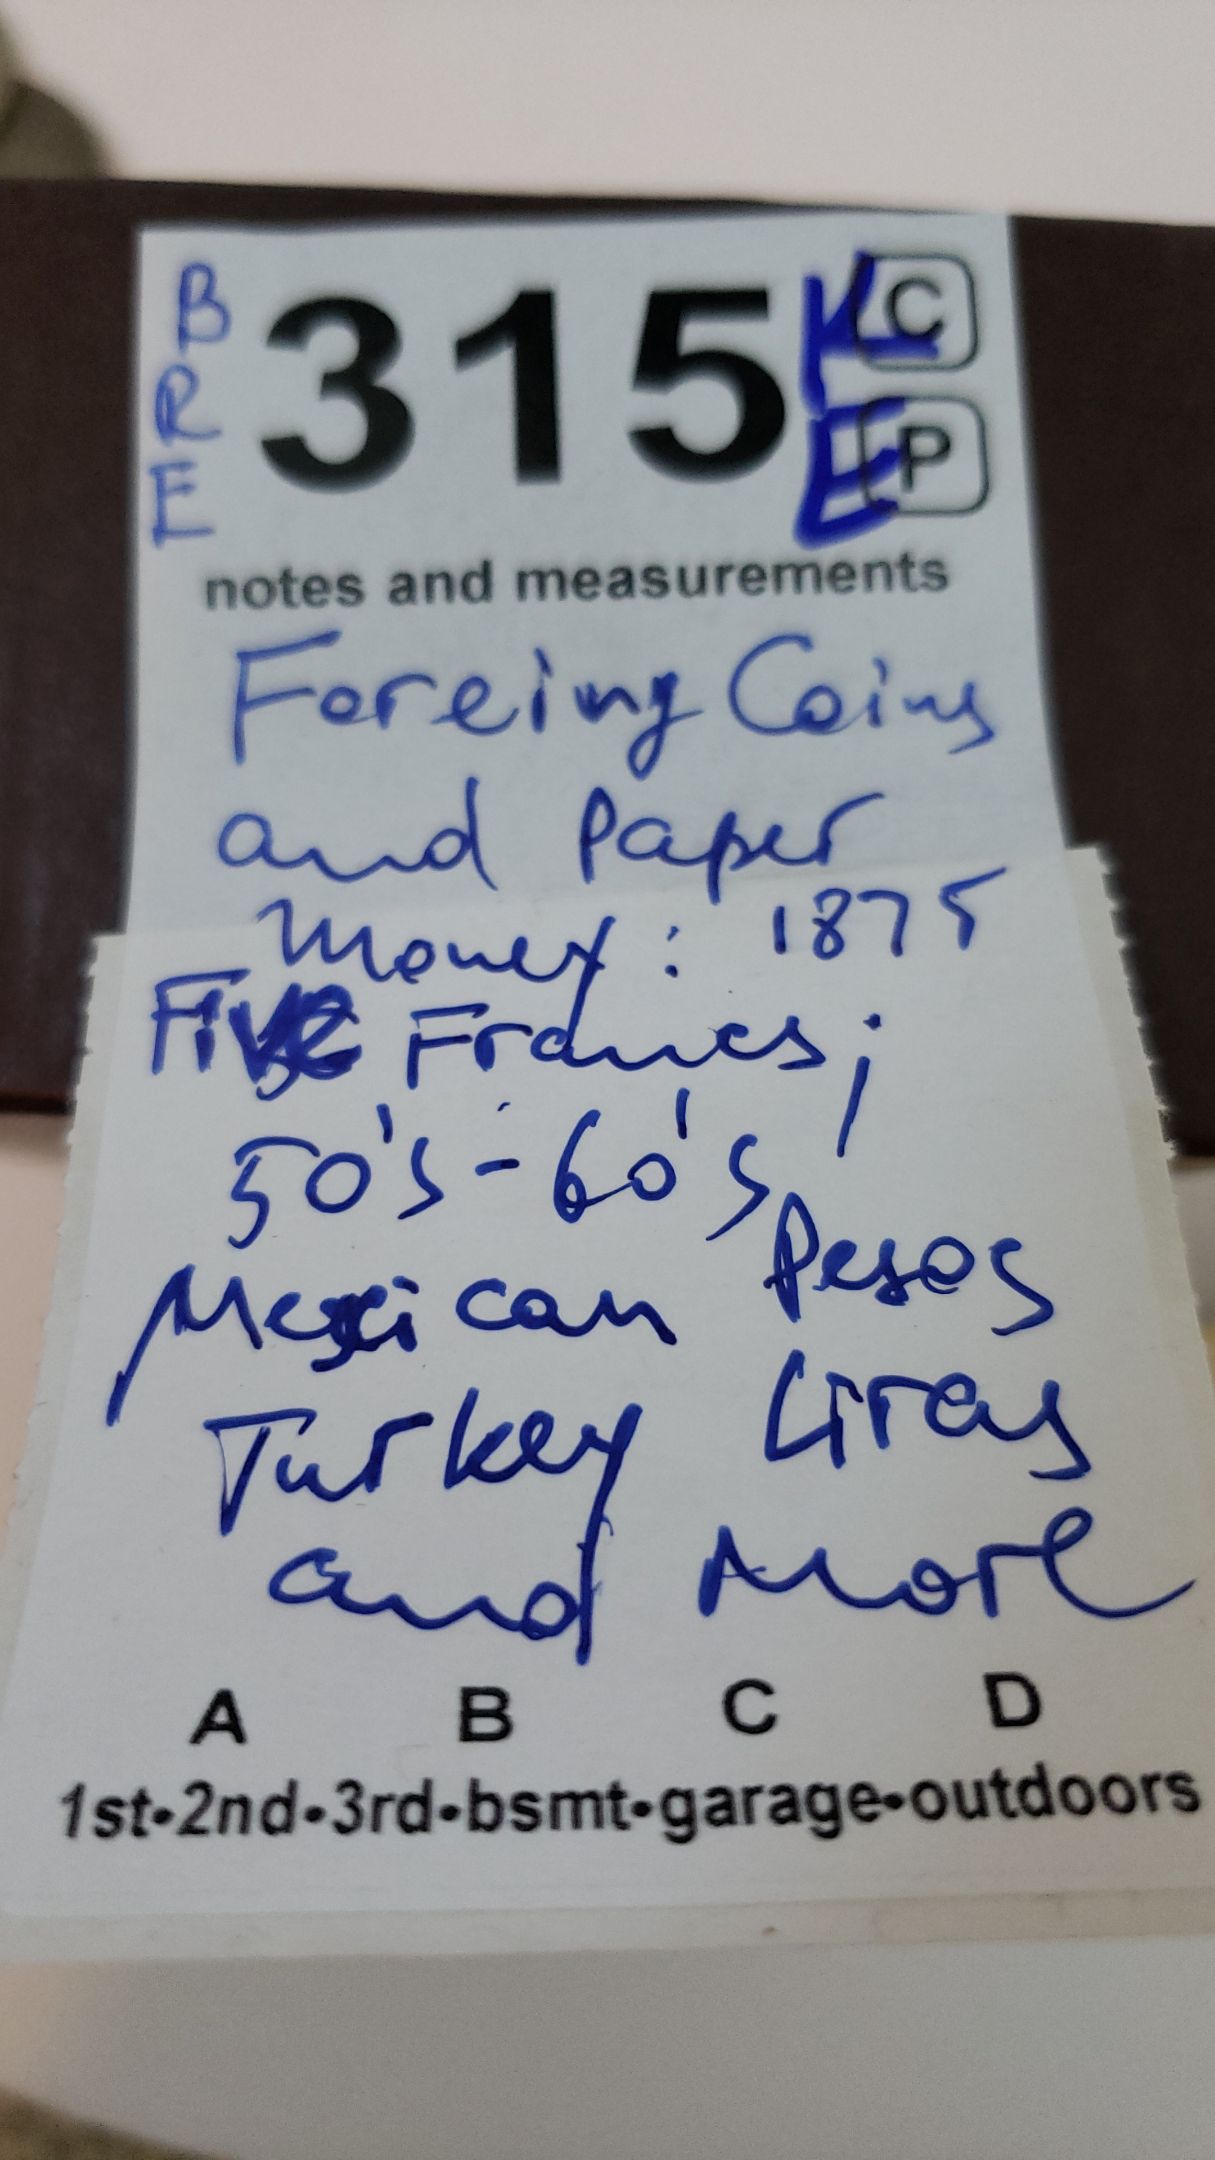 B
R
E
315
K
E
C
P
notes and measurements
Foreing Coins
and Paper
Money: 1875
Five Francs;
50's-60's
Mexican Pesos
Turkey Liras
and More
A B C D
1st•2nd•3rd•bsmt•garage•outdoors